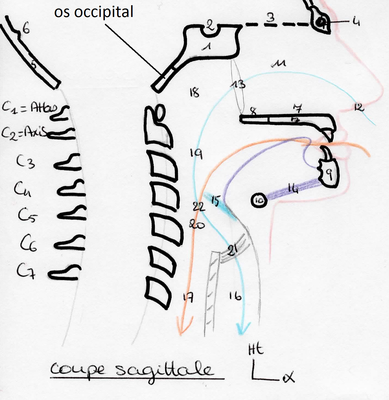 os occipital
2 3 4
1
6
5
11
13
18
12
C1 = Atlas
8 7
C2 = Axis
19
C3
9
C4
14
10
15
22
C5
20
21
C6
C7
17 16
Ht
coupe sagittale